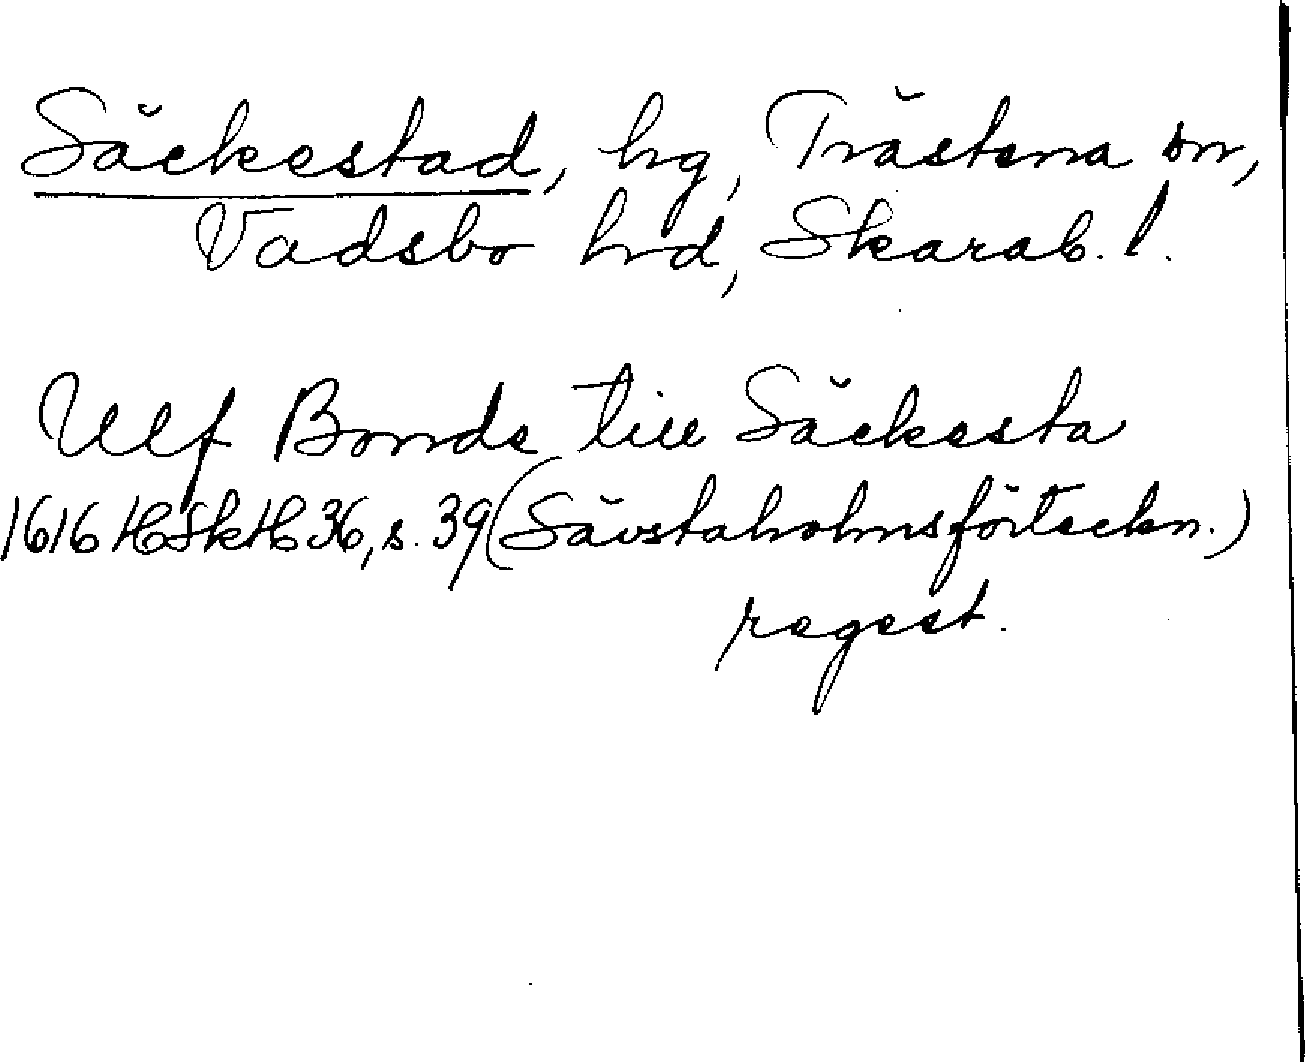 Säckestad, hg, Trästena sn,
Vadsbo hrd, Skarab. l.
Ulf Bonde till Säckesta
1616 HSkH 36, s. 39 (Sävstaholmsförteckn.)
regest.